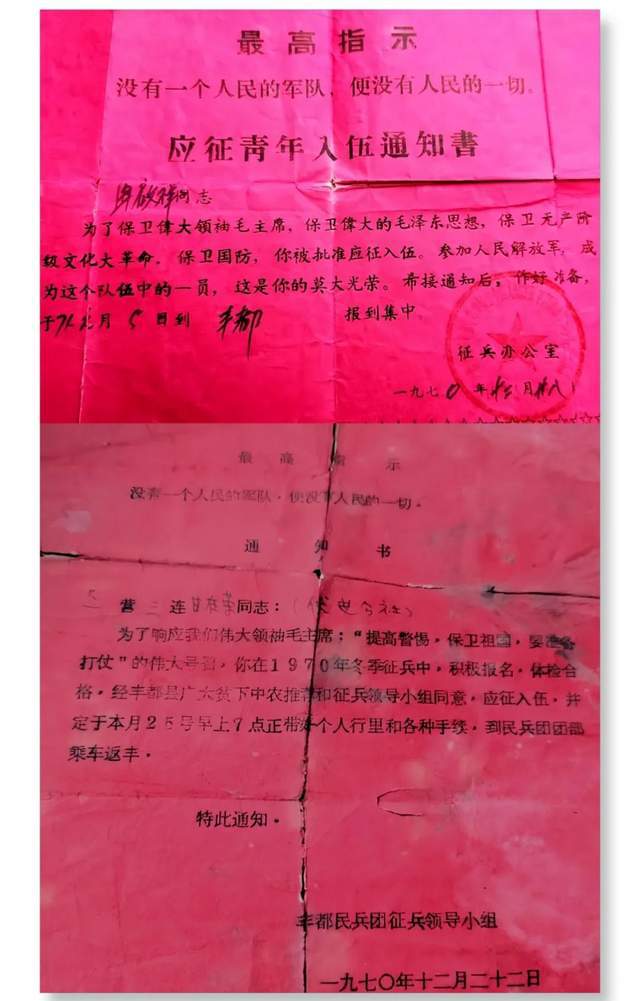 最高指示
没有一个人民的军队，便没有人民的一切。
应征青年入伍通知書
同志
为了保卫偉大领袖毛主席，保卫偉大的毛泽东思想，保卫无产阶
级文化大革命，保卫国防，你被批准应征入伍。参加人民解放军，成
为这个队伍中的一员，这是你的莫大光荣。希接通知后，作好准备，
于71年 月5日到 丰都 报到集中。
征兵办公室
一九七0年 月
最高指示
没有一个人民的军队，便没有人民的一切。
通知书
营三连 同志：
为了响应我们伟大领袖毛主席：“提高警惕，保卫祖国，要准备
打仗”的伟大号召，你在1970年冬季征兵中，积极报名，体检合
格，经丰都县广大贫下中农推荐和征兵领导小组同意，应征入伍，并
定于本月25号早上7点正带好个人行里和各种手续，到民兵团团部
乘车返丰．
特此通知．
丰都民兵团征兵领导小组
一九七〇年十二月二十二日